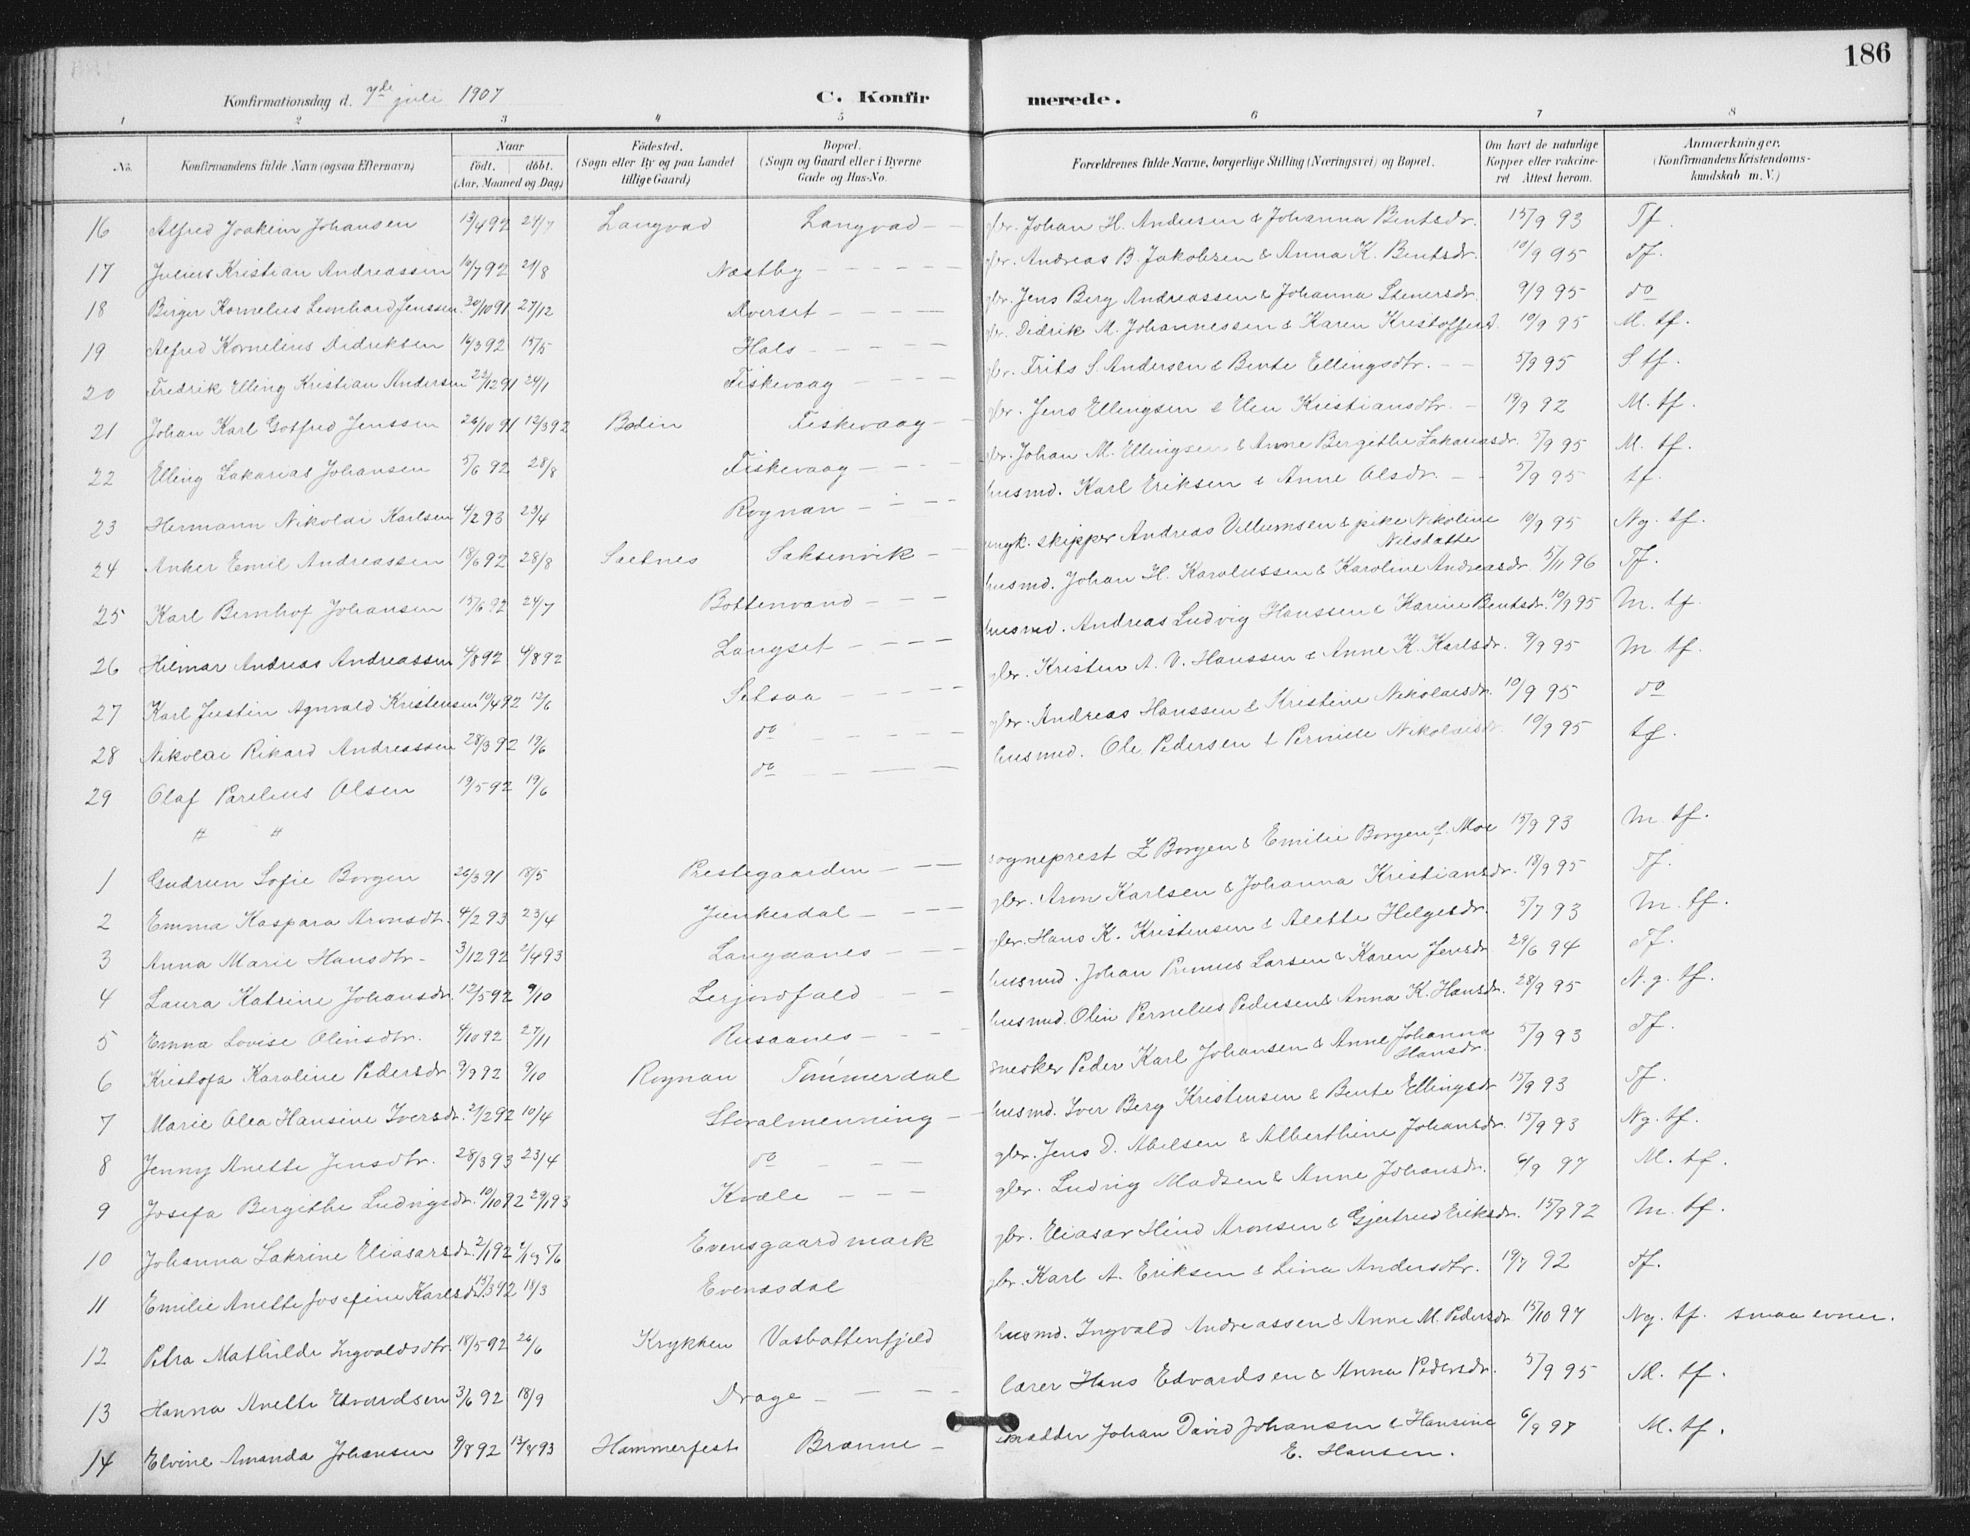 186
Konfirmationsdag d. 7de juli 1907 C. Konfir merede.
1 2 3 4 5 6 7 8
No. Konfirmandens fulde Navn (ogsaa Efternavn) Naar födt. döbt. (Aar, Maaned og Dag) Födested. (Sogn eller By og paa Landet tillige Gaard) Bopæl. (Sogn og Gaard eller i Byerne Gade og Hus-No. Forældrenes fulde Navne, borgerlige Stilling (Næringsvei) og Bopæl. Om havt de naturlige Kopper eller vakcineret Attest herom. Anmærkninger. (Konfirmandens Kristendomskundskab m. V.)
16 Alfred Joakim Johansen 13/4 92 24/7 Langvad Langvad gbr. Johan H. Andersen & Johanna Bentsdr. 15/9 93 Tf.
17 Julius Kristian Andreassen 10/7 92 21/8 Næstby gbr. Andreas B. Jakobsen & Anna K. Bentsdr. 10/9 95 Tf.
18 Birger Kornelius Leonhard Jenssen 30/10 91 27/12 Kverset gbr. Jens Berg Andreassen & Johanna Stenersdr. 9/9 95 do
19 Alfred Kornelius Didriksen 14/3 92 15/5 Hals gbr. Didrik M. Johannessen & Karen Kristoffersd. 10/9 95 M. tf.
20 Fredrik Elling Kristian Andersen 23/12 91 24/1 Fiskevaag gbr. Frits S. Andersen & Bente Ellingsdtr. 5/9 95 S tf.
21 Johan Karl Gotfred Jenssen 26/10 91 12/3 92 Bodin Fiskevaag gbr. Jens Ellingsen & Elen Kristiansdtr. 19/9 92 M. tf.
22 Elling Zakarias Johansen 5/6 92 28/8 Fiskevaag gbr. Johan M. Ellingsen & Anne Bergithe Zakariasdr. 5/9 95 M. tf.
23 Hermann Nikolai Karlsen 4/2 93 23/4 Rognan husmd. Karl Eriksen & Anne Olsdr. 5/9 95 tf.
24 Anker Emil Andreassen 18/6 92 28/8 Saltnes Saksenvik ungk. skipper Andreas Villumsen & pike Nikoline Nilsdatter 10/9 95 Ng. tf.
25 Karl Bernhof Johansen 15/6 92 24/7 Bottenvand husmd. Johan H. Karolussen & Karoline Andreasdr. 5/11 96 Tf.
26 Hilmar Andreas Andreassen 4/8 92 4/8 92 Langset husmd. Andreas Ludvig Hanssen & Karine Bentsdr. 10/9 95 M. tf.
27 Karl Justin Agnvald Kristensen 10/4 92 12/6 Setsaa gbr. Kristen A. V. Hanssen & Anne K. Karlsdr. 9/9 95 M tf.
28 Nikolai Rikard Andreassen 28/3 92 19/6 do gbr. Andreas Hanssen & Kristine Nikolaisdr. 10/9 95 do
29 Olaf Parelius Olsen 19/5 92 19/6 do husmd. Ole Pedersen & Pernille Nikolaisdr. 10/9 95 tf.
" "
1 Gudrun Sofie Borgen 26/3 91 18/5 Prestegaarden sogneprest Z Borgen & Emilie Borgen f. Moe 15/9 93 M tf.
2 Emma Kaspara Aronsdtr. 4/2 93 23/4 Junkerdal gbr. Aron Karlsen & Johanna Kristiansdr. 18/9 95 Tf.
3 Anna Marie Hansdtr. 3/12 92 2/4 93 Langaanes gbr. Hans K. Kristensen & Alette Helgesdr. 5/7 93 M. tf.
4 Laura Katrine Johansdr. 12/5 92 9/10 Lerjordfald husmd. Johan Primus Larsen & Karen Jensdr. 29/6 94 Tf.
5 Emma Lovise Olinsdtr. 4/10 92 27/11 Rusaanes husmd. Olin Pernelius Pedersen & Anna K. Hansdr. 28/9 95 N.g. tf.
6 Kristofa Karoline Pedersdr. 9/9 92 9/10 Rognan Tømmerdal snedker Peder Karl Johansen & Anne Johanna Hansdr. 5/9 93 Tf.
7 Marie Olea Hansine Iversdr. 21/2 92 10/4 Storalmenning husmd. Iver Berg Kristensen & Bente Ellingsdr. 15/9 93 Tf.
8 Jenny Anette Jensdtr. 28/3 93 23/4 do gbr. Jens D. Abelsen & Alberthine Johansdr. 15/9 93 Ng. tf.
9 Josefa Bergithe Ludvigsdr. 10/10 92 29/1 93 Kvæle gbr. Ludvig Madsen & Anne Johansdr. 6/9 97 M. tf.
10 Johanna Zakrine Eliasarsdr. 2/1 92 5/6 Evensgaardmark gbr. Eliasar Hind Aronsen & Gjertrud Eriksdr. 15/9 92 M. tf.
11 Emilie Anette Josefine Karlsdr. 13/3 92 18/3 Evensdal gbr. Karl A. Eriksen & Lina Andersdtr. 19/7 92 Tf.
12 Petra Mathilde Ingvaldsdtr. 18/5 92 26/6 Krykken Vasbottenfjeld husmd. Ingvald Andreassen & Anne M. Pedersdr. 15/10 97 Ng. tf. smaa evner.
13 Hanna Anette Edvardsen 3/6 92 18/9 Drage lærer Hans Edvardsen & Anna Pedersdr. 5/9 95 M. tf.
14 Elvine Amanda Johansen 9/8 92 13/8 93 Hammerfest Brænne Johan David Johansen & Hansine E. Hansen. 6/9 97 M. tf.